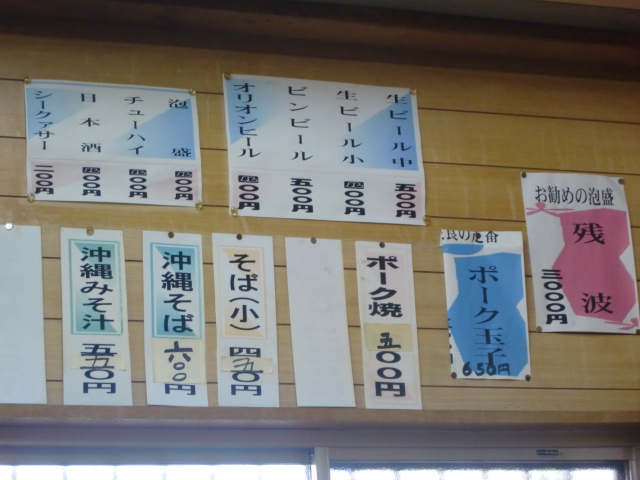 生ビール中 五〇〇円
生ビール小 四〇〇円
ビンビール 五〇〇円
オリオンビール 四〇〇円
泡盛 四〇〇円
チューハイ 四〇〇円
日本酒 四〇〇円
シークァサー 二〇〇円
お勧めの泡盛
残波
三〇〇〇円
ポーク玉子
650円
ポーク焼
五〇〇円
そば(小)
四五〇円
沖縄そば
六〇〇円
沖縄みそ汁
五五〇円